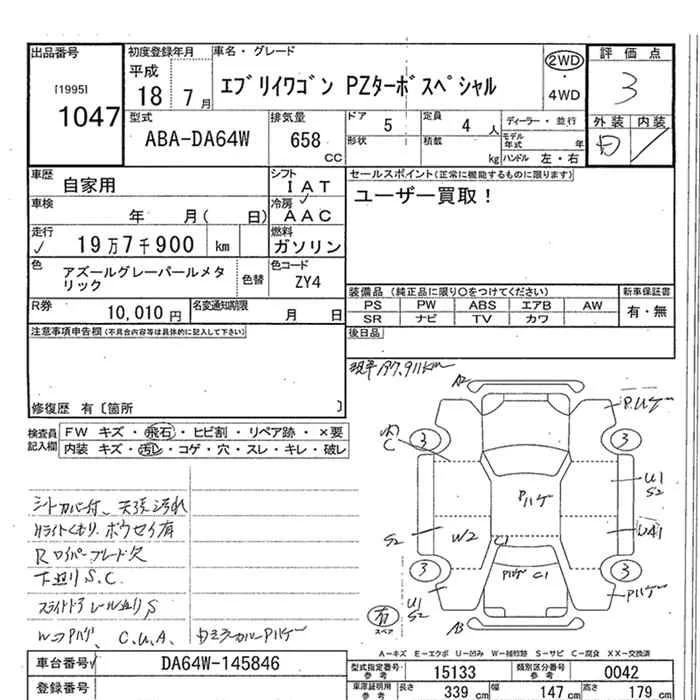 出品番号 初度登録年月 車名・グレード 評価点
[1995] 平成 エブリイワゴン PZターボスペシャル 2WD 3
1047 18 7月 ・ 4WD
型式 排気量 ドア 5 定員 4人 ディーラー・並行 外装 内装
ABA-DA64W 658 CC 形状 積載 kg モデル年式 年 D
ハンドル 左・右
車歴 自家用 シフト IAT セールスポイント(正常に機能するものに限ります)
車検 年 月( 日) 冷房 AAC ユーザー買取!
走行 19万7千900 km 燃料 ガソリン
色 アズールグレーパールメタリック 色替 色コード ZY4
装備品(純正品に限り○をつけてください) 新車保証書
R券 10,010円 名変通知期限 月 日 PS PW ABS エアB AW 有・無
SR ナビ TV カワ
注意事項申告欄(不具合内容等は具体的に記入して下さい) 後日品
現車197,911km
修復歴 有〔箇所 〕
検査員記入欄 FW キズ・飛石・ヒビ割・リペア跡・×要
内装 キズ・汚レ・コゲ・穴・スレ・キレ・破レ
A2
P.ハゲ
C 3 3
U1
S2
Pハゲ
シートカバー付、天張汚れ
S2 W2 C1 U41
Rワイパーブレード欠
Pハゲ C1
下廻りS.C. 3 3
Pハゲ
U1
S2
スライドドアレール廻りS
右 スペア
A3
W⊃Pハゲ C.U.A.
A-キズ E-エクボ U-凹み W-補修跡 S-サビ C-腐食 XX-交換済
車台番号 DA64W-145846 型式指定番号 参考 15133 類別区分番号 参考 0042
登録番号 車庫証明用 参考 長さ 339 cm 幅 147 cm 高さ 179 cm